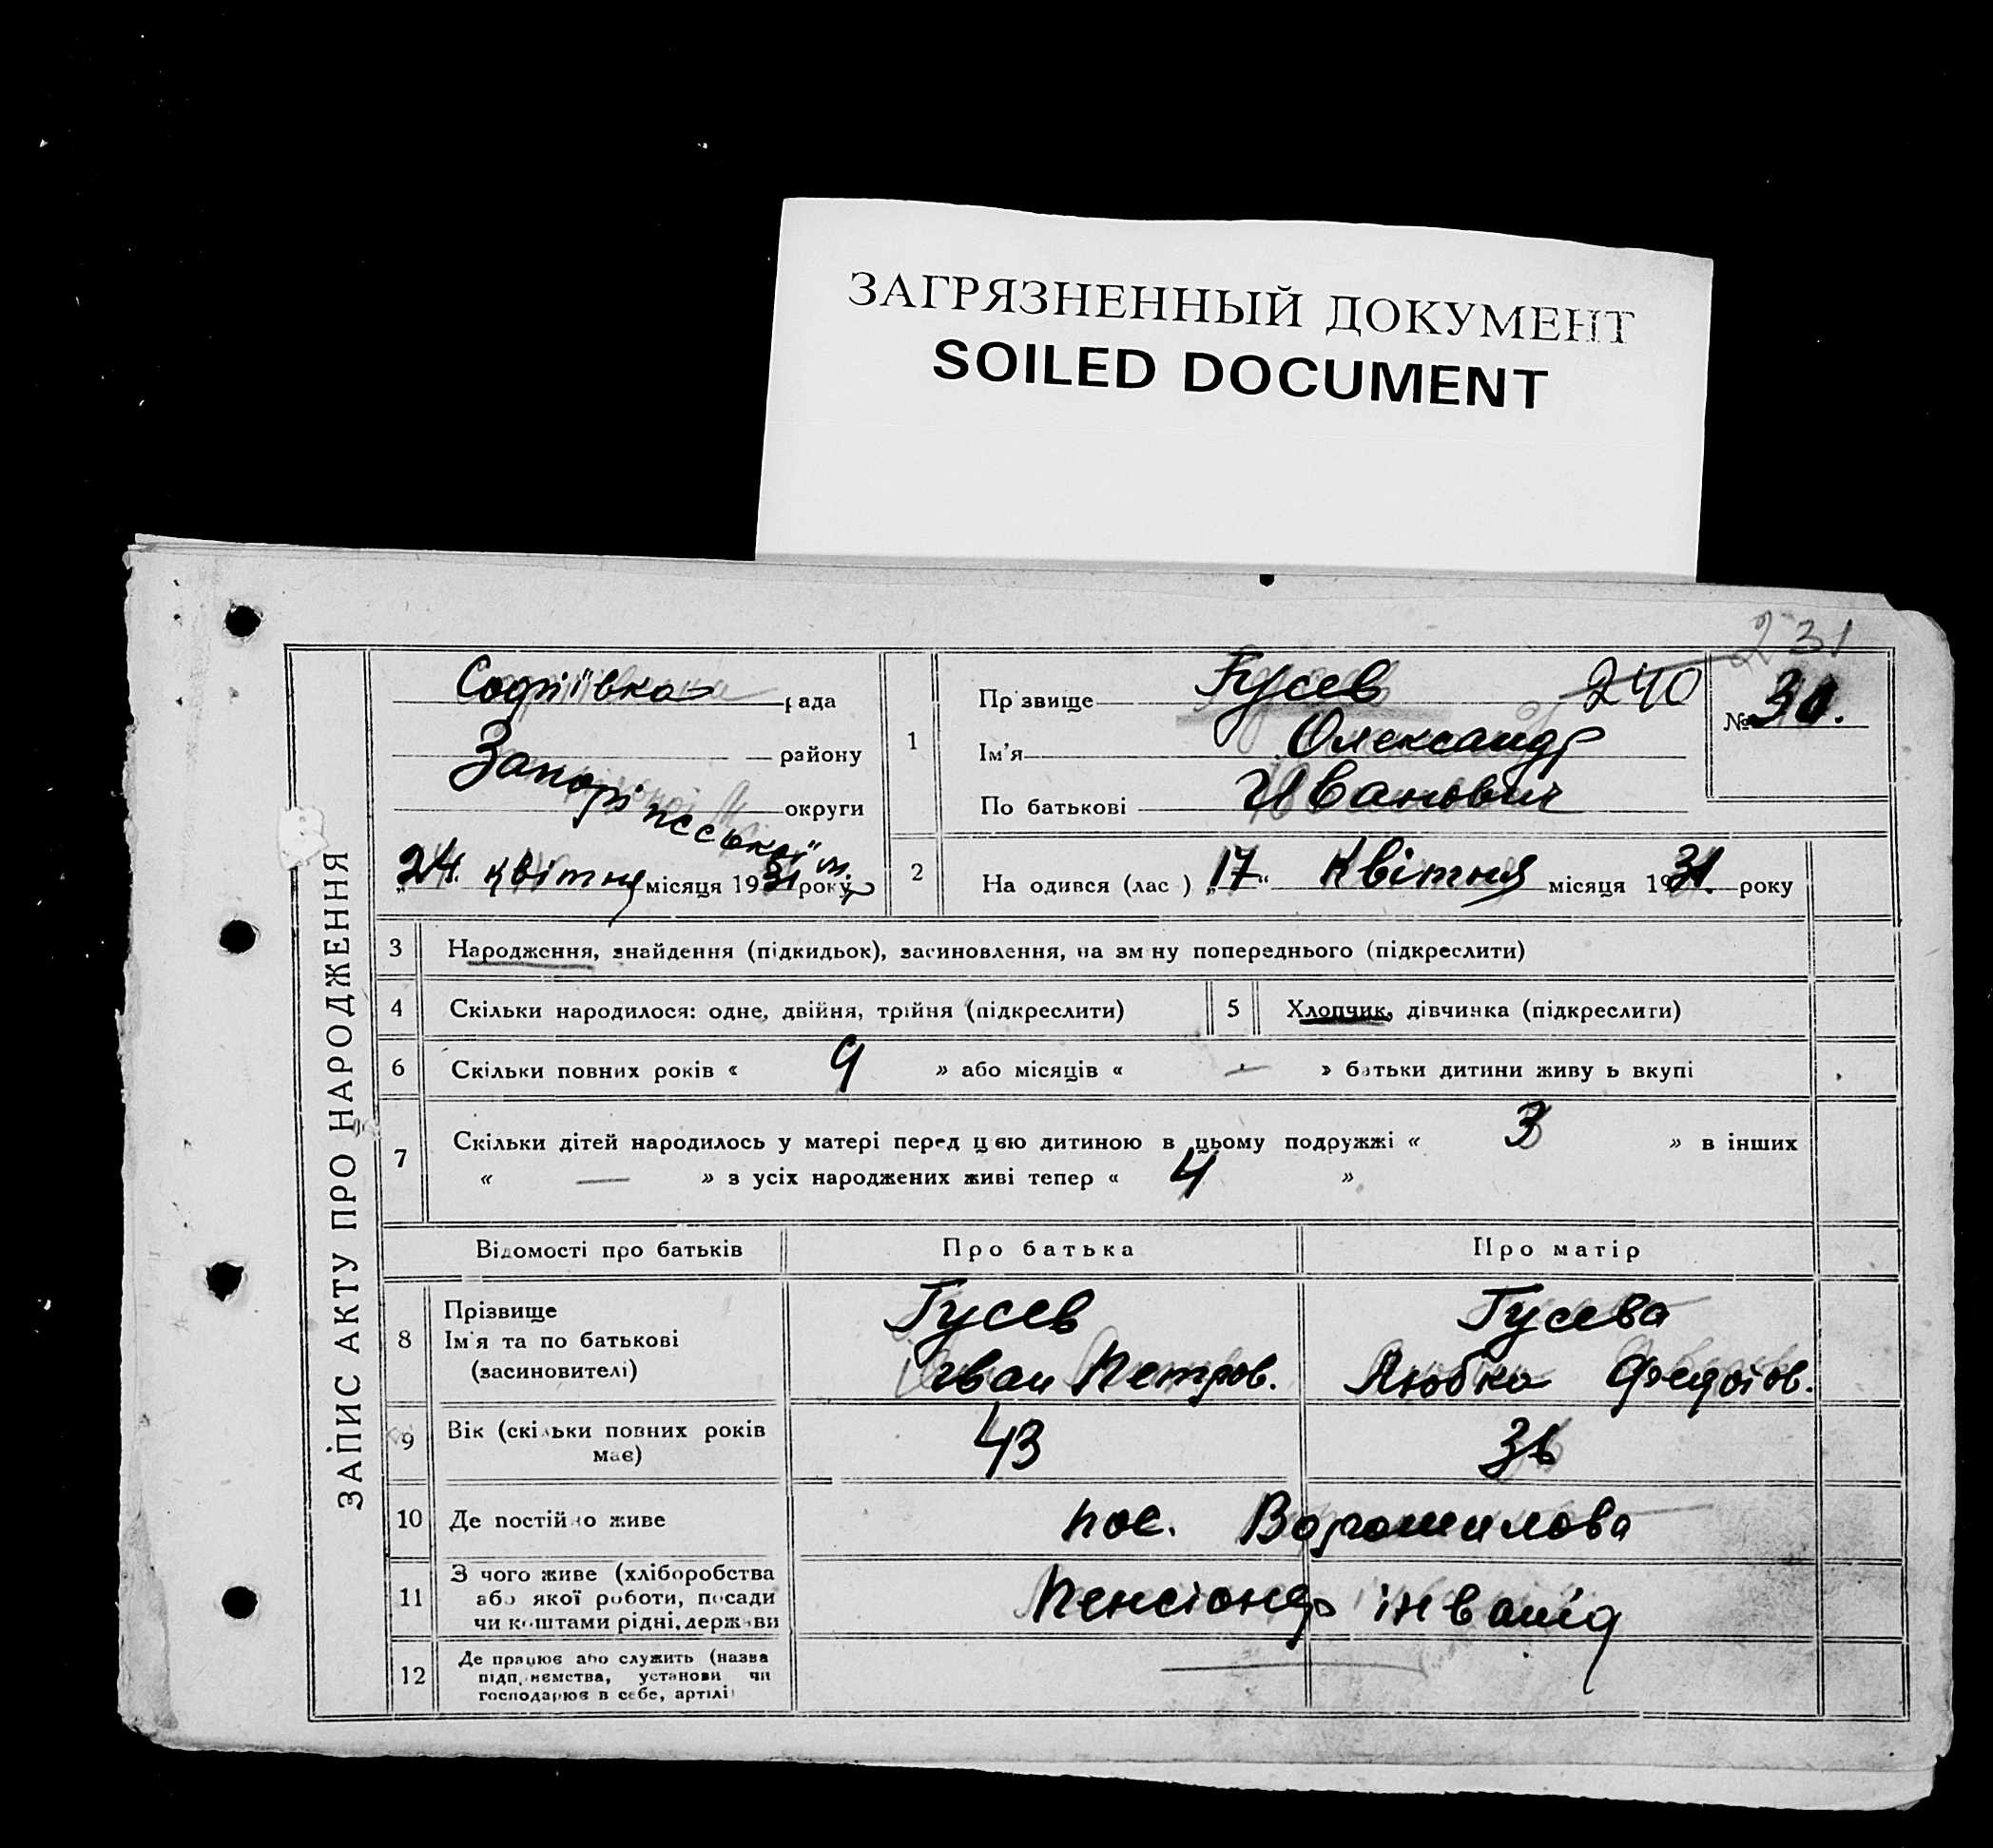 ЗАГРЯЗНЕННЫЙ ДОКУМЕНТ
SOILED DOCUMENT
231
ЗАПИС АКТУ ПРО НАРОДЖЕННЯ
Софіївка рада
Запорі району
округи
"24. квітня місяця 1931 року
1
Прізвище Гусев 240
Ім'я Олександр
По батькові Иванович
№ 30.
2
На одився (лас ) „17" Квітня місяця 1931. року
3 Народження, знайдення (підкидьок), засиновлення, на зм ну попереднього (підкреслити)
4 Скільки народилося: одне, двійня, трійня (підкреслити)
5 Хлопчик, дівчинка (підкреслити)
6 Скільки повних років « 9 » або місяців « — » батьки дитини живу ь вкупі
7 Скільки дітей народилось у матері перед цією дитиною в цьому подружжі « 3 » в інших
« — » з усіх народжених живі тепер « 4 »
Відомості про батьків Про батька Про матір
8 Прізвище
Ім'я та по батькові
(засиновителі)
Гусев
Іван Петров.
Гусева
Любка
9 Вік (скільки повних років
має)
43
10 Де постійно живе пос. Ворошилова
11 З чого живе (хліборобства
або якої роботи, посади
чи коштами рідні, держави
Пенсіонер інвалід
12 Де працює або служить (назва
підп, иємства, установи чи
господарює в себе, артілі)